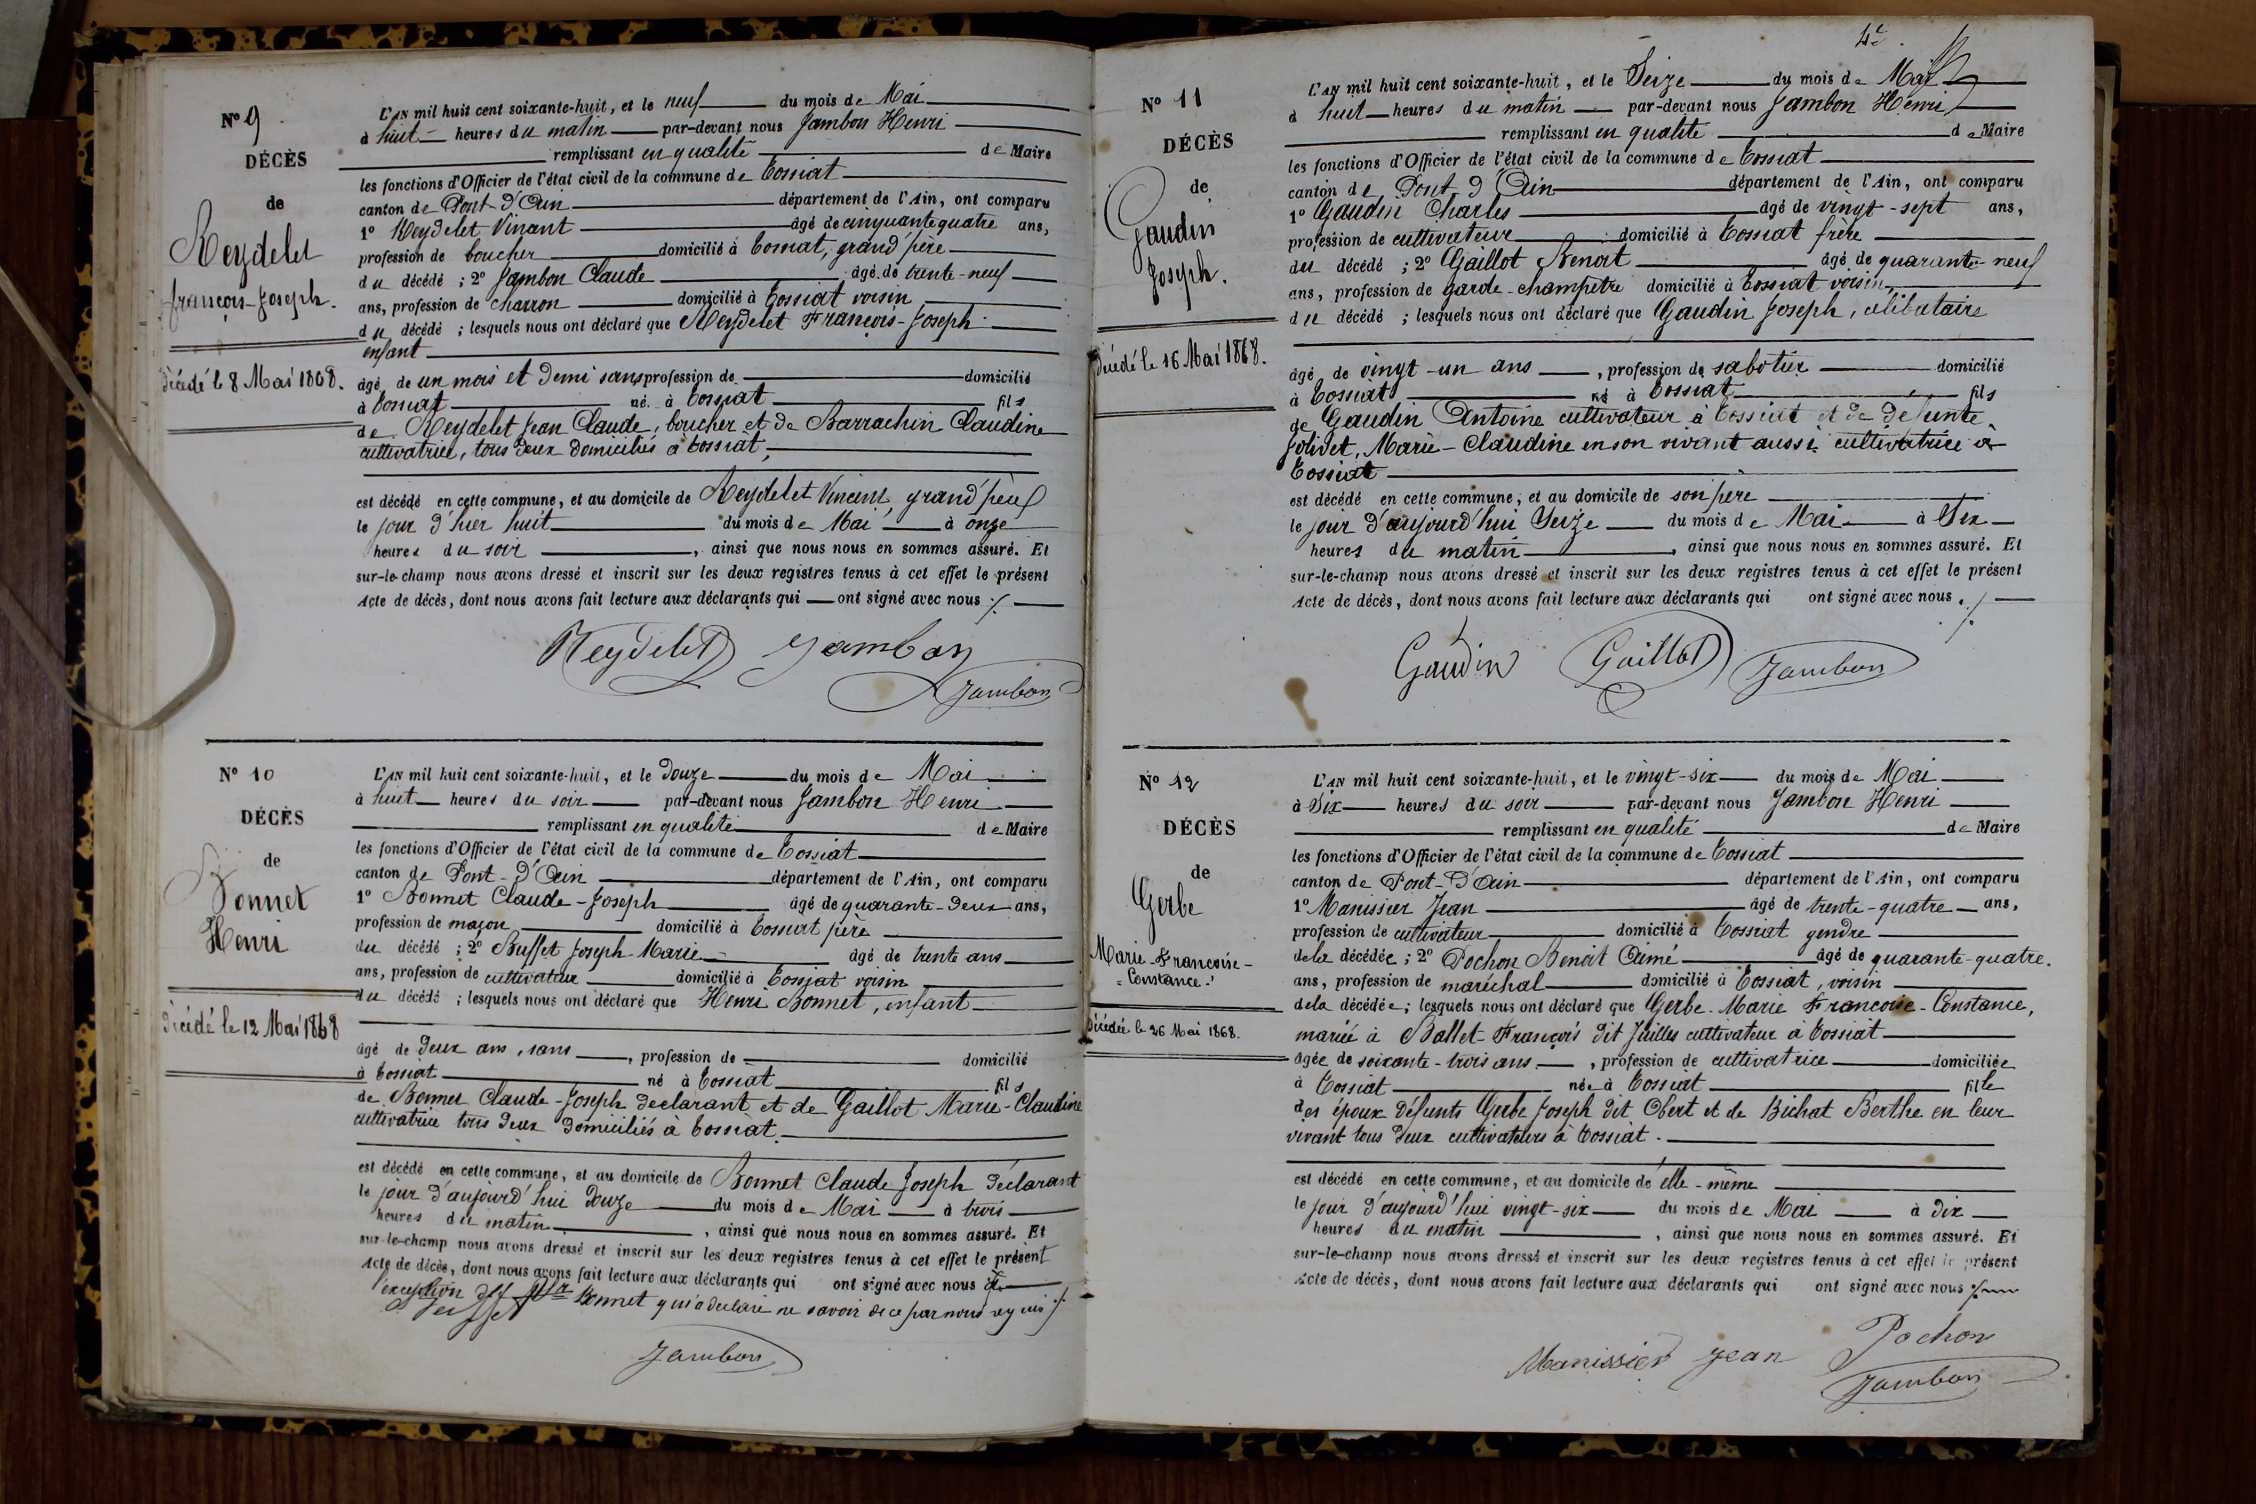 N° 9
DÉCÈS
de
Reydelet
françois-Joseph.
Décédé le 8 Mai 1868.
L'AN mil huit cent soixante-huit, et le neuf du mois de Mai
à huit heures du matin par-devant nous Jambon Henri
remplissant en qualité de Maire
les fonctions d'Officier de l'état civil de la commune de Tossiat
canton de Pont-d'Ain département de l'Ain, ont comparu
1° Reydelet Vincent âgé de cinquante quatre ans,
profession de boucher domicilié à Tossiat, grand père
du décédé ; 2° Jambon Claude âgé de trente-neuf
ans, profession de charron domicilié à Tossiat voisin
du décédé ; lesquels nous ont déclaré que Reydelet François-Joseph
enfant
âgé de un mois et demi sans profession de domicilié
à Tossiat né à Tossiat fils
de Reydelet Jean Claude, boucher et de Barrachin Claudine
cultivatrice, tous deux domiciliés à Tossiat,
est décédé en cette commune, et au domicile de Reydelet Vincent, grand'père
le jour d'hier huit du mois de Mai à onze
heures du soir , ainsi que nous nous en sommes assuré. Et
sur-le-champ nous avons dressé et inscrit sur les deux registres tenus à cet effet le présent
Acte de décès, dont nous avons fait lecture aux déclarants qui ont signé avec nous ./.
Reydelet Jambon
Jambon
N° 10
DÉCÈS
de
Bonnet
Henri
Décédé le 12 Mai 1868
L'AN mil huit cent soixante-huit, et le douze du mois de Mai
à huit heures du soir par-devant nous Jambon Henri
remplissant en qualité de Maire
les fonctions d'Officier de l'état civil de la commune de Tossiat
canton de Pont-d'Ain département de l'Ain, ont comparu
1° Bonnet Claude-Joseph âgé de quarante-deux ans,
profession de maçon domicilié à Tossiat père
du décédé ; 2° Buffet Joseph-Marie âgé de trente ans
ans, profession de cultivateur domicilié à Tossiat voisin
du décédé ; lesquels nous ont déclaré que Henri Bonnet, enfant
âgé de deux ans, sans , profession de domicilié
à Tossiat né à Tossiat fils
de Bonnet Claude-Joseph déclarant et de Gaillot Marie-Claudine
cultivatrice tous deux domiciliés à Tossiat.
est décédé en cette commune, et au domicile de Bonnet Claude Joseph déclarant
le jour d'aujourd'hui douze du mois de Mai à trois
heures du matin , ainsi que nous nous en sommes assuré. Et
sur-le-champ nous avons dressé et inscrit sur les deux registres tenus à cet effet le présent
Acte de décès, dont nous avons fait lecture aux déclarants qui ont signé avec nous à
l'exception Bonnet qui a déclaré ne savoir de ce par nous requis ./.
Buffet
Jambon
4e
N° 11
DÉCÈS
de
Gaudin
Joseph.
Décédé le 16 Mai 1868.
L'AN mil huit cent soixante-huit, et le Seize du mois de Mai
à huit heures du matin par-devant nous Jambon Henri
remplissant en qualité de Maire
les fonctions d'Officier de l'état civil de la commune de Tossiat
canton de Pont d'Ain département de l'Ain, ont comparu
1° Gaudin Charles âgé de vingt-sept ans,
profession de cultivateur domicilié à Tossiat frère
du décédé ; 2° Gaillot Benoit âgé de quarante-neuf
ans, profession de garde-champêtre domicilié à Tossiat voisin,
du décédé ; lesquels nous ont déclaré que Gaudin Joseph, célibataire
âgé de vingt-un ans , profession de sabotier domicilié
à Tossiat né à Tossiat fils
de Gaudin Antoine cultivateur à Tossiat et de défunte
Jolivet, Marie-Claudine en son vivant aussi cultivatrice à
Tossiat
est décédé en cette commune, et au domicile de son père
le jour d'aujourd'hui Seize du mois de Mai à Six
heures du matin , ainsi que nous nous en sommes assuré. Et
sur-le-champ nous avons dressé et inscrit sur les deux registres tenus à cet effet le présent
Acte de décès, dont nous avons fait lecture aux déclarants qui ont signé avec nous ./.
Gaudin Gaillot Jambon
N° 12
DÉCÈS
de
Gerbe
Marie-Françoise-
Constance.
Décédée le 26 Mai 1868.
L'AN mil huit cent soixante-huit, et le vingt-six du mois de Mai
à Six heures du soir par-devant nous Jambon Henri
remplissant en qualité de Maire
les fonctions d'Officier de l'état civil de la commune de Tossiat
canton de Pont-d'Ain département de l'Ain, ont comparu
1° Manissier Jean âgé de trente-quatre ans,
profession de cultivateur domicilié à Tossiat gendre
de la décédée ; 2° Pochon Benoit Aimé âgé de quarante-quatre.
ans, profession de maréchal domicilié à Tossiat, voisin
de la décédée ; lesquels nous ont déclaré que Gerbe Marie Françoise-Constance,
mariée à Ballet-François dit Juilles cultivateur à Tossiat
âgée de soixante-trois ans , profession de cultivatrice domiciliée
à Tossiat née à Tossiat fille
des époux défunts Gerbe Joseph dit Obert et de Bichat Berthe en leur
vivant tous deux cultivateurs à Tossiat.
est décédé en cette commune, et au domicile de elle-même
le jour d'aujourd'hui vingt-six du mois de Mai à dix
heures du matin , ainsi que nous nous en sommes assuré. Et
sur-le-champ nous avons dressé et inscrit sur les deux registres tenus à cet effet le présent
Acte de décès, dont nous avons fait lecture aux déclarants qui ont signé avec nous ./.
Pochon
Manissier Jean
Jambon